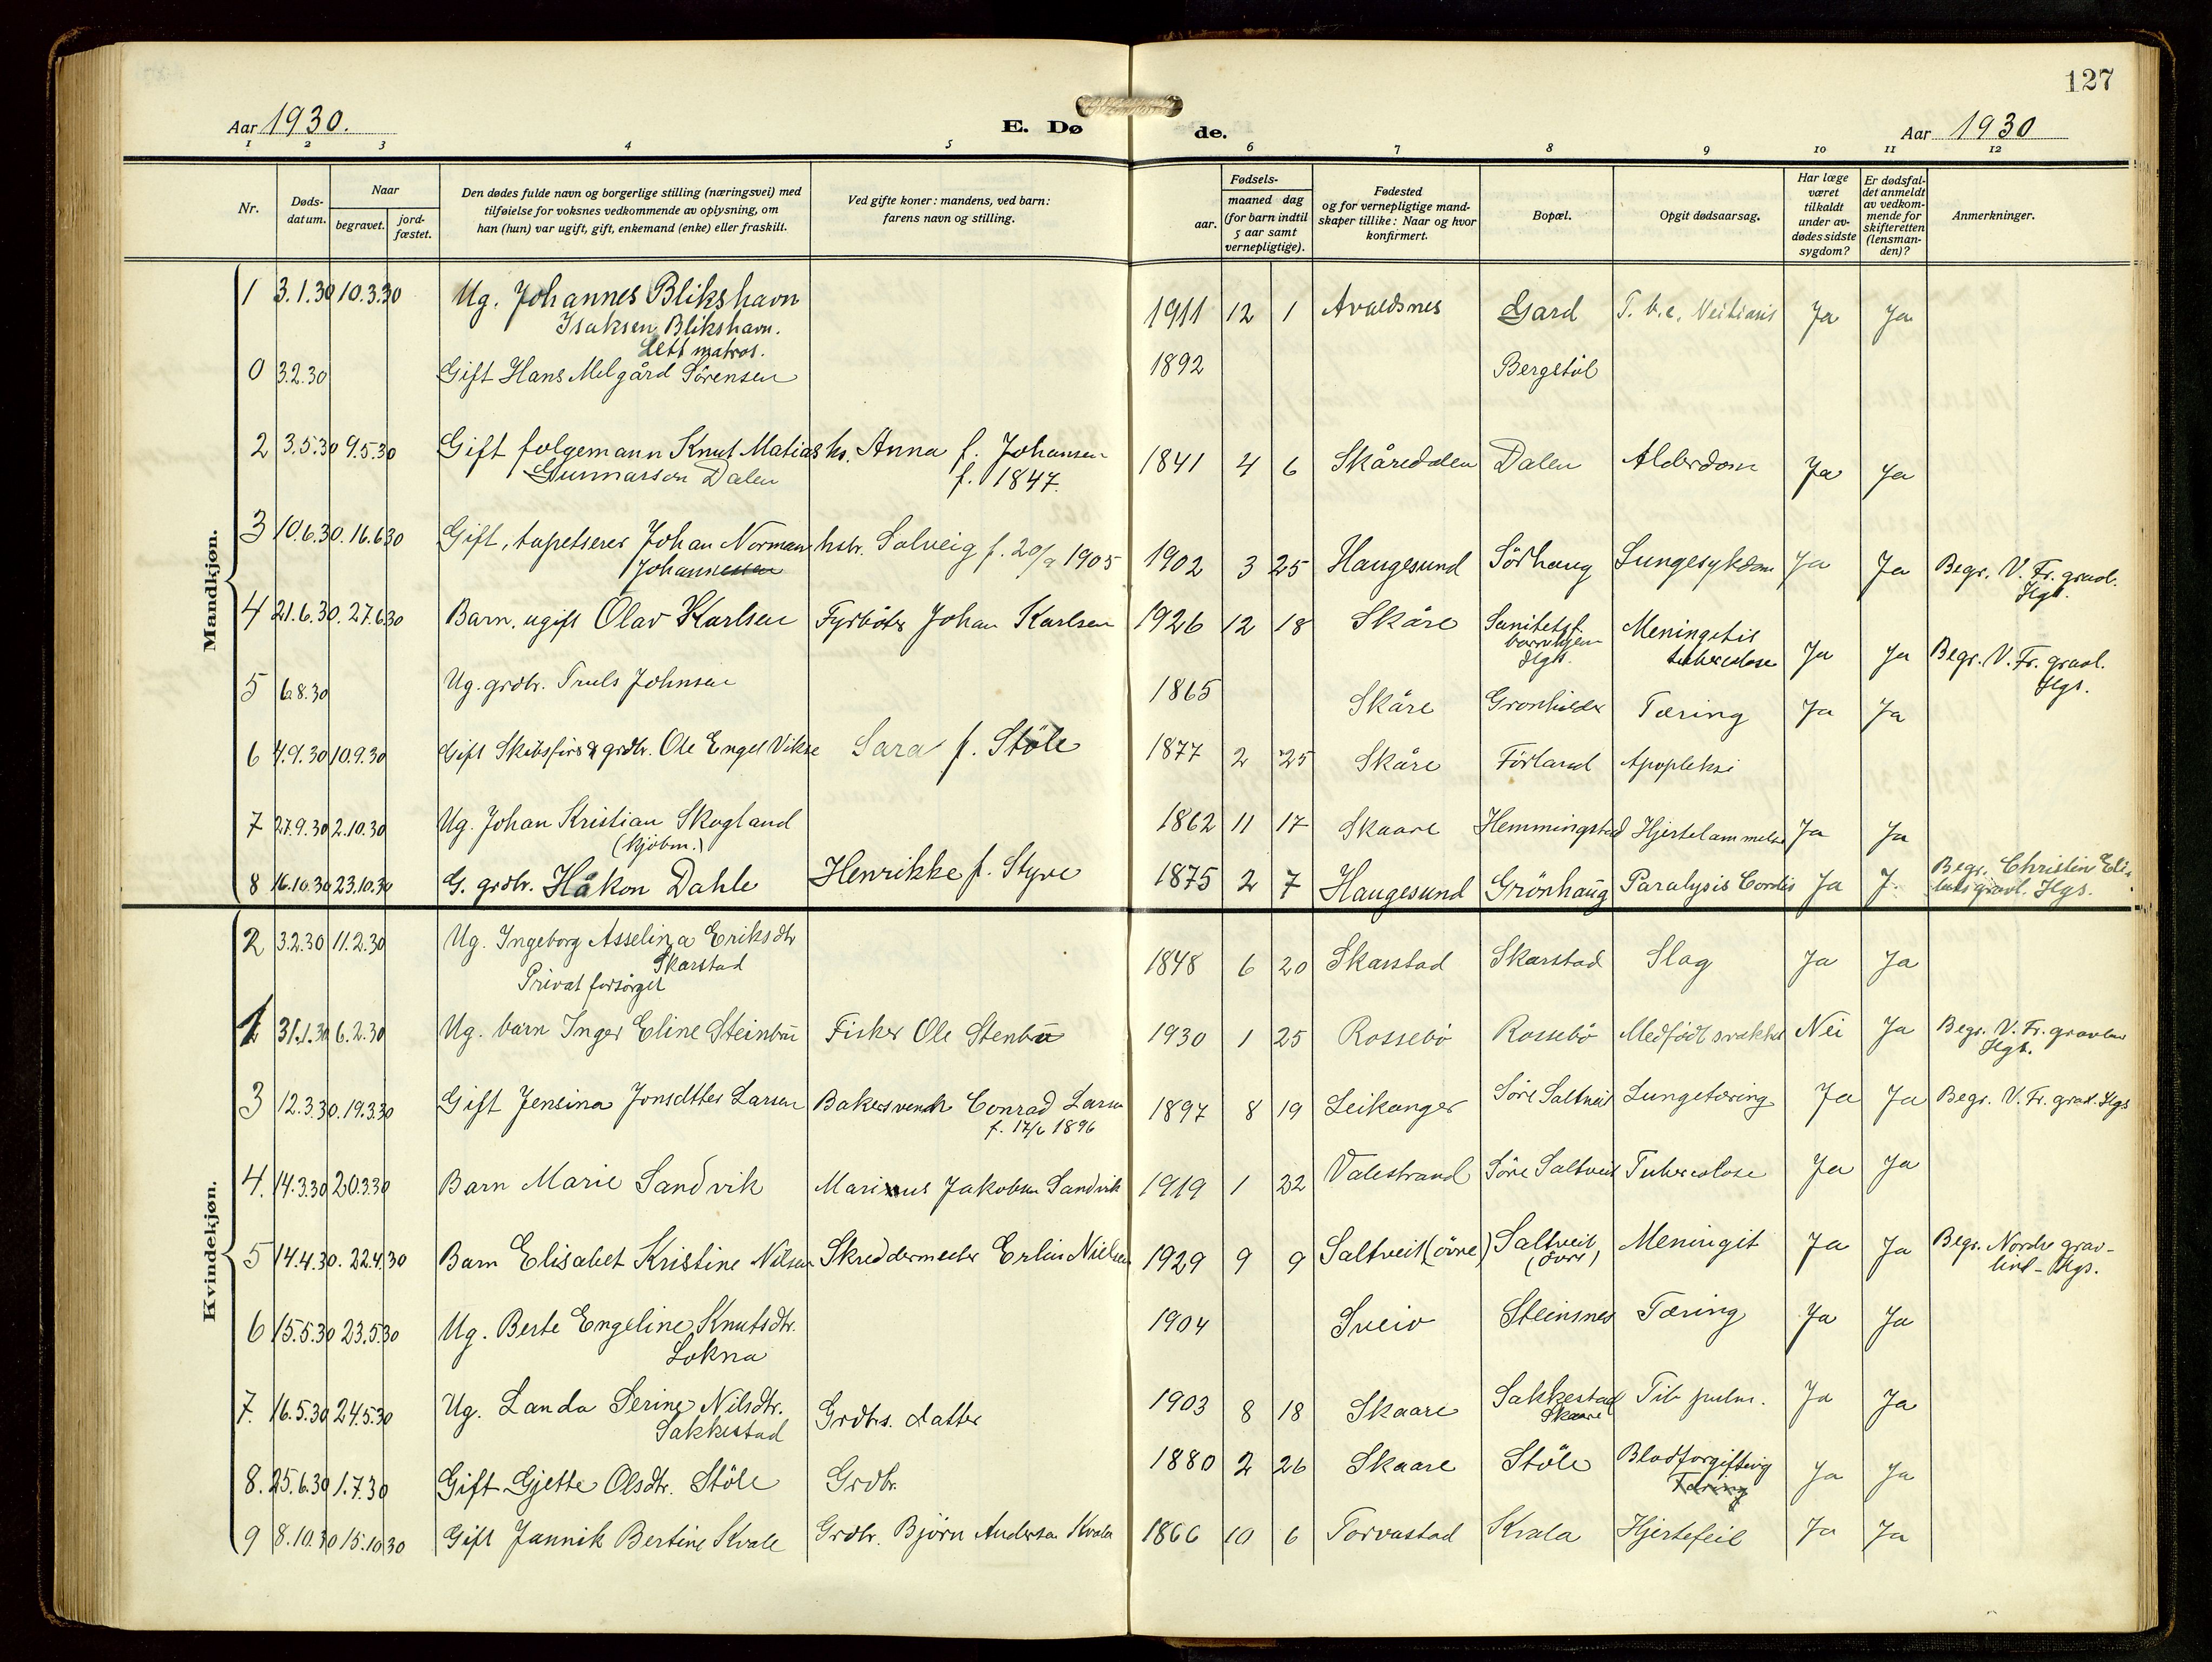 127
Aar 1930.
E. Døde.
Aar 1930
1 2 3 4 5 6 7 8 9 10 11 12
Nr.
Døds-
datum.
Naar
begravet.
jord-
fæstet.
Den dødes fulde navn og borgerlige stilling (næringsvei) med
tilføielse for voksnes vedkommende av oplysning, om
han (hun) var ugift, gift, enkemand (enke) eller fraskilt.
Ved gifte koner: mandens, ved barn:
farens navn og stilling.
Fødsels-
aar.
maaned dag
(for barn indtil
5 aar samt
vernepligtige).
Fødested
og for vernepligtige mand-
skaper tillike: Naar og hvor
konfirmert.
Bopæl.
Opgit dødsaarsag.
Har læge
været
tilkaldt
under av-
dødes sidste
sygdom?
Er dødsfal-
det anmeldt
av vedkom-
mende for
skifteretten
(lensman-
den)?
Anmerkninger.
Mandkjøn.
1 3.1.30 10.3.30 Ug. Johannes Blikshavn 1911 12 1 Avaldsnes Gard T.b.c. Ja Ja
Isaksen Blikshavn.
Lett matros.
0 3.2.30 Gift Hans Melgård Sörensen 1892 Bergstöl
2 3.5.30 9.5.30 Gift folgemann Knut Matias hs. Anna f. Johansen 1841 4 6 Skåredalen Dalen Alderdom Ja Ja
Gunnarson Dalen f. 1847.
3 10.6.30. 16.6.30 Gift, tapetserer Johan Norman hstr. Solveig f. 20/9 1905 1902 3 25 Haugesund Sörhaug Lungesykdom Ja Ja Begr. V. Fr. gravl.
Johannessen Hgs.
4 21.6.30. 27.6.30 Barn, ugift Olav Karlsen Fyrböter Johan Karlsen 1926 12 18 Skåre Sanitetsf. Meningitis Ja Ja Begr. V. Fr. gravl.
barnehjem tuberculose Hgs.
Hgs.
5 6.8.30 Ug. grdbr. Truls Johnsen 1865 Skåre Tæring Ja Ja
6 4.9.30 10.9.30 Gift Skibsförer & grdbr. Ole Engel Vikse Sara f. Stöle 1877 2 25 Skåre Förland Apopleksi
7 27.9.30 2.10.30 Ug. Johan Kristian Skogland 1862 11 17 Skaare Hemmingstad Hjertelammelse Ja Ja
(kjöbm.)
8 16.10.30 23.10.30 G. grdbr. Håkon Dahle Henrikke f. Styve 1875 2 7 Haugesund Grönhaug Paralysis Cordis Ja J. Begr. Christin Eli-
gravl. Hgs.
Kvindekjøn.
2 3.2.30 11.2.30 Ug. Ingeborg Asselina Eriksdtr 1848 6 20 Skarstad Skarstad Slag Ja Ja
Skarstad
Privat forsörget
1 31.1.30 6.2.30 Ug. barn Inger Eline Steinbru Fisker Ole Stenbru 1930 1 25 Rossebö Rossebö Medfödt svakhet Nei Ja Begr. V. Fr. gravlun
Hgs.
3 12.3.30. 19.3.30 Gift Jensina Jonsdtter Larsen Bakersvend Conrad Larsen 1897 8 19 Leikanger Söre Saltveit Lungetæring Ja Ja Begr. V. Fr. grav. Hgs
f. 17/6 1896
4. 14.3.30 20.3.30 Barn Marie Sandvik Marinus Jakobsen Sandvik 1919 1 22 Valestrand Söre Saltveit Tuberculose Ja Ja
5 14.4.30. 22.4.30 Barn Elisabet Kristine Nilsen Skreddermester Erlin Nielsen 1929 9 9 Saltveit (övre) Saltveit Meningit Ja Ja Begr. Nordre grav-
(övre) lund - Hgs.
6 15.5.30 23.5.30 Ug. Berte Engeline Knutsdtr. 1904 Sveio Steinsnes Tæring Ja Ja
Lokna
7. 16.5.30 24.5.30 Ug. Landa Serine Nilsdtr. Grdbrs. datter 1903 8 18 Skaare Sakkestad Tub pulm. Ja Ja
Sakkestad Skaare
8. 25.6.30 1.7.30 Gift Gjette Olsdtr. Stöle Grdbr. 1880 2 26 Skaare Stöle Blodforgiftning Ja Ja
Tæring
9 8.10.30 15.10.30 Gift Jannik Bertine Kvale Grdbr. Björn Andersen Kvala 1866 10 6 Torvastad Kvala Hjertefeil Ja Ja